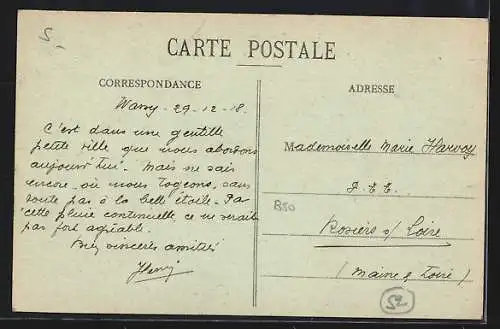 5
CARTE POSTALE
CORRESPONDANCE
ADRESSE
Wassy - 29-12-18.
C'est dans une gentille
petite ville que nous abordons
aujourd'hui. Mais ne sais
encore où nous logeons, sans
doute pas à la belle étoile. Par
cette pluie continuelle ce ne serait
pas fort agréable.
Bien sincères amitiés
Henry
Mademoiselle Marie Harvoy
B50
Rosiers s/ Loire
(Maine & Loire)
52